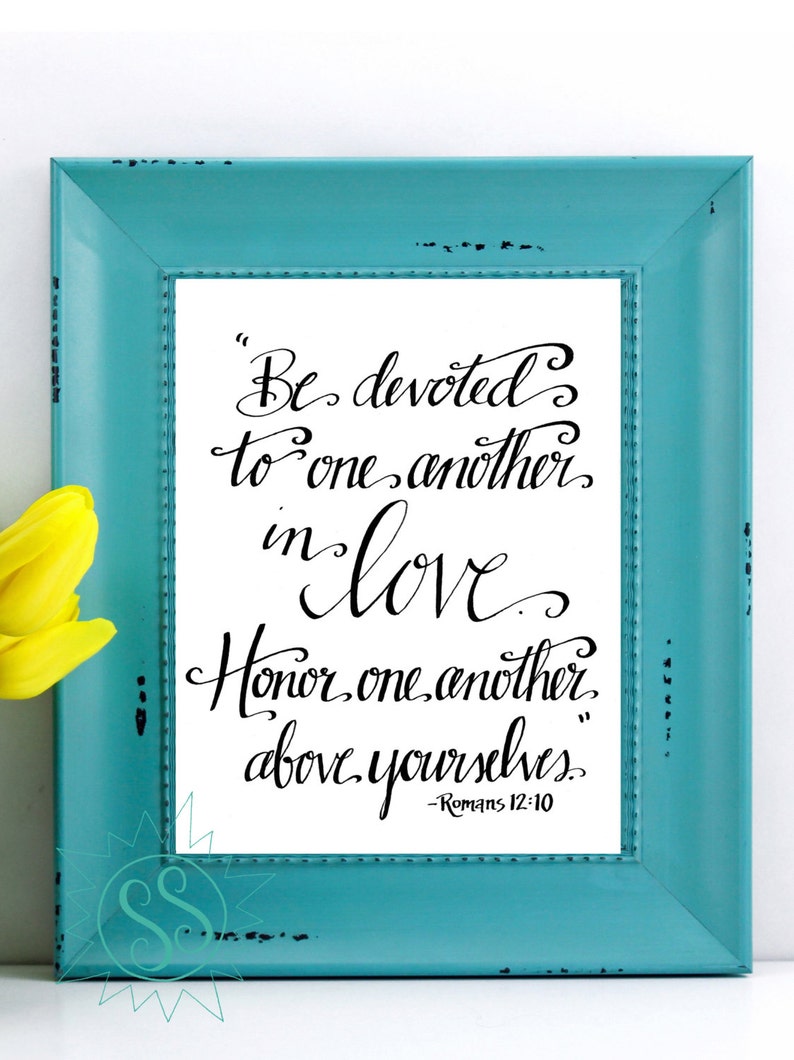 "Be devoted
to one another
in love.
Honor one another
above yourselves."
-Romans 12:10
SS